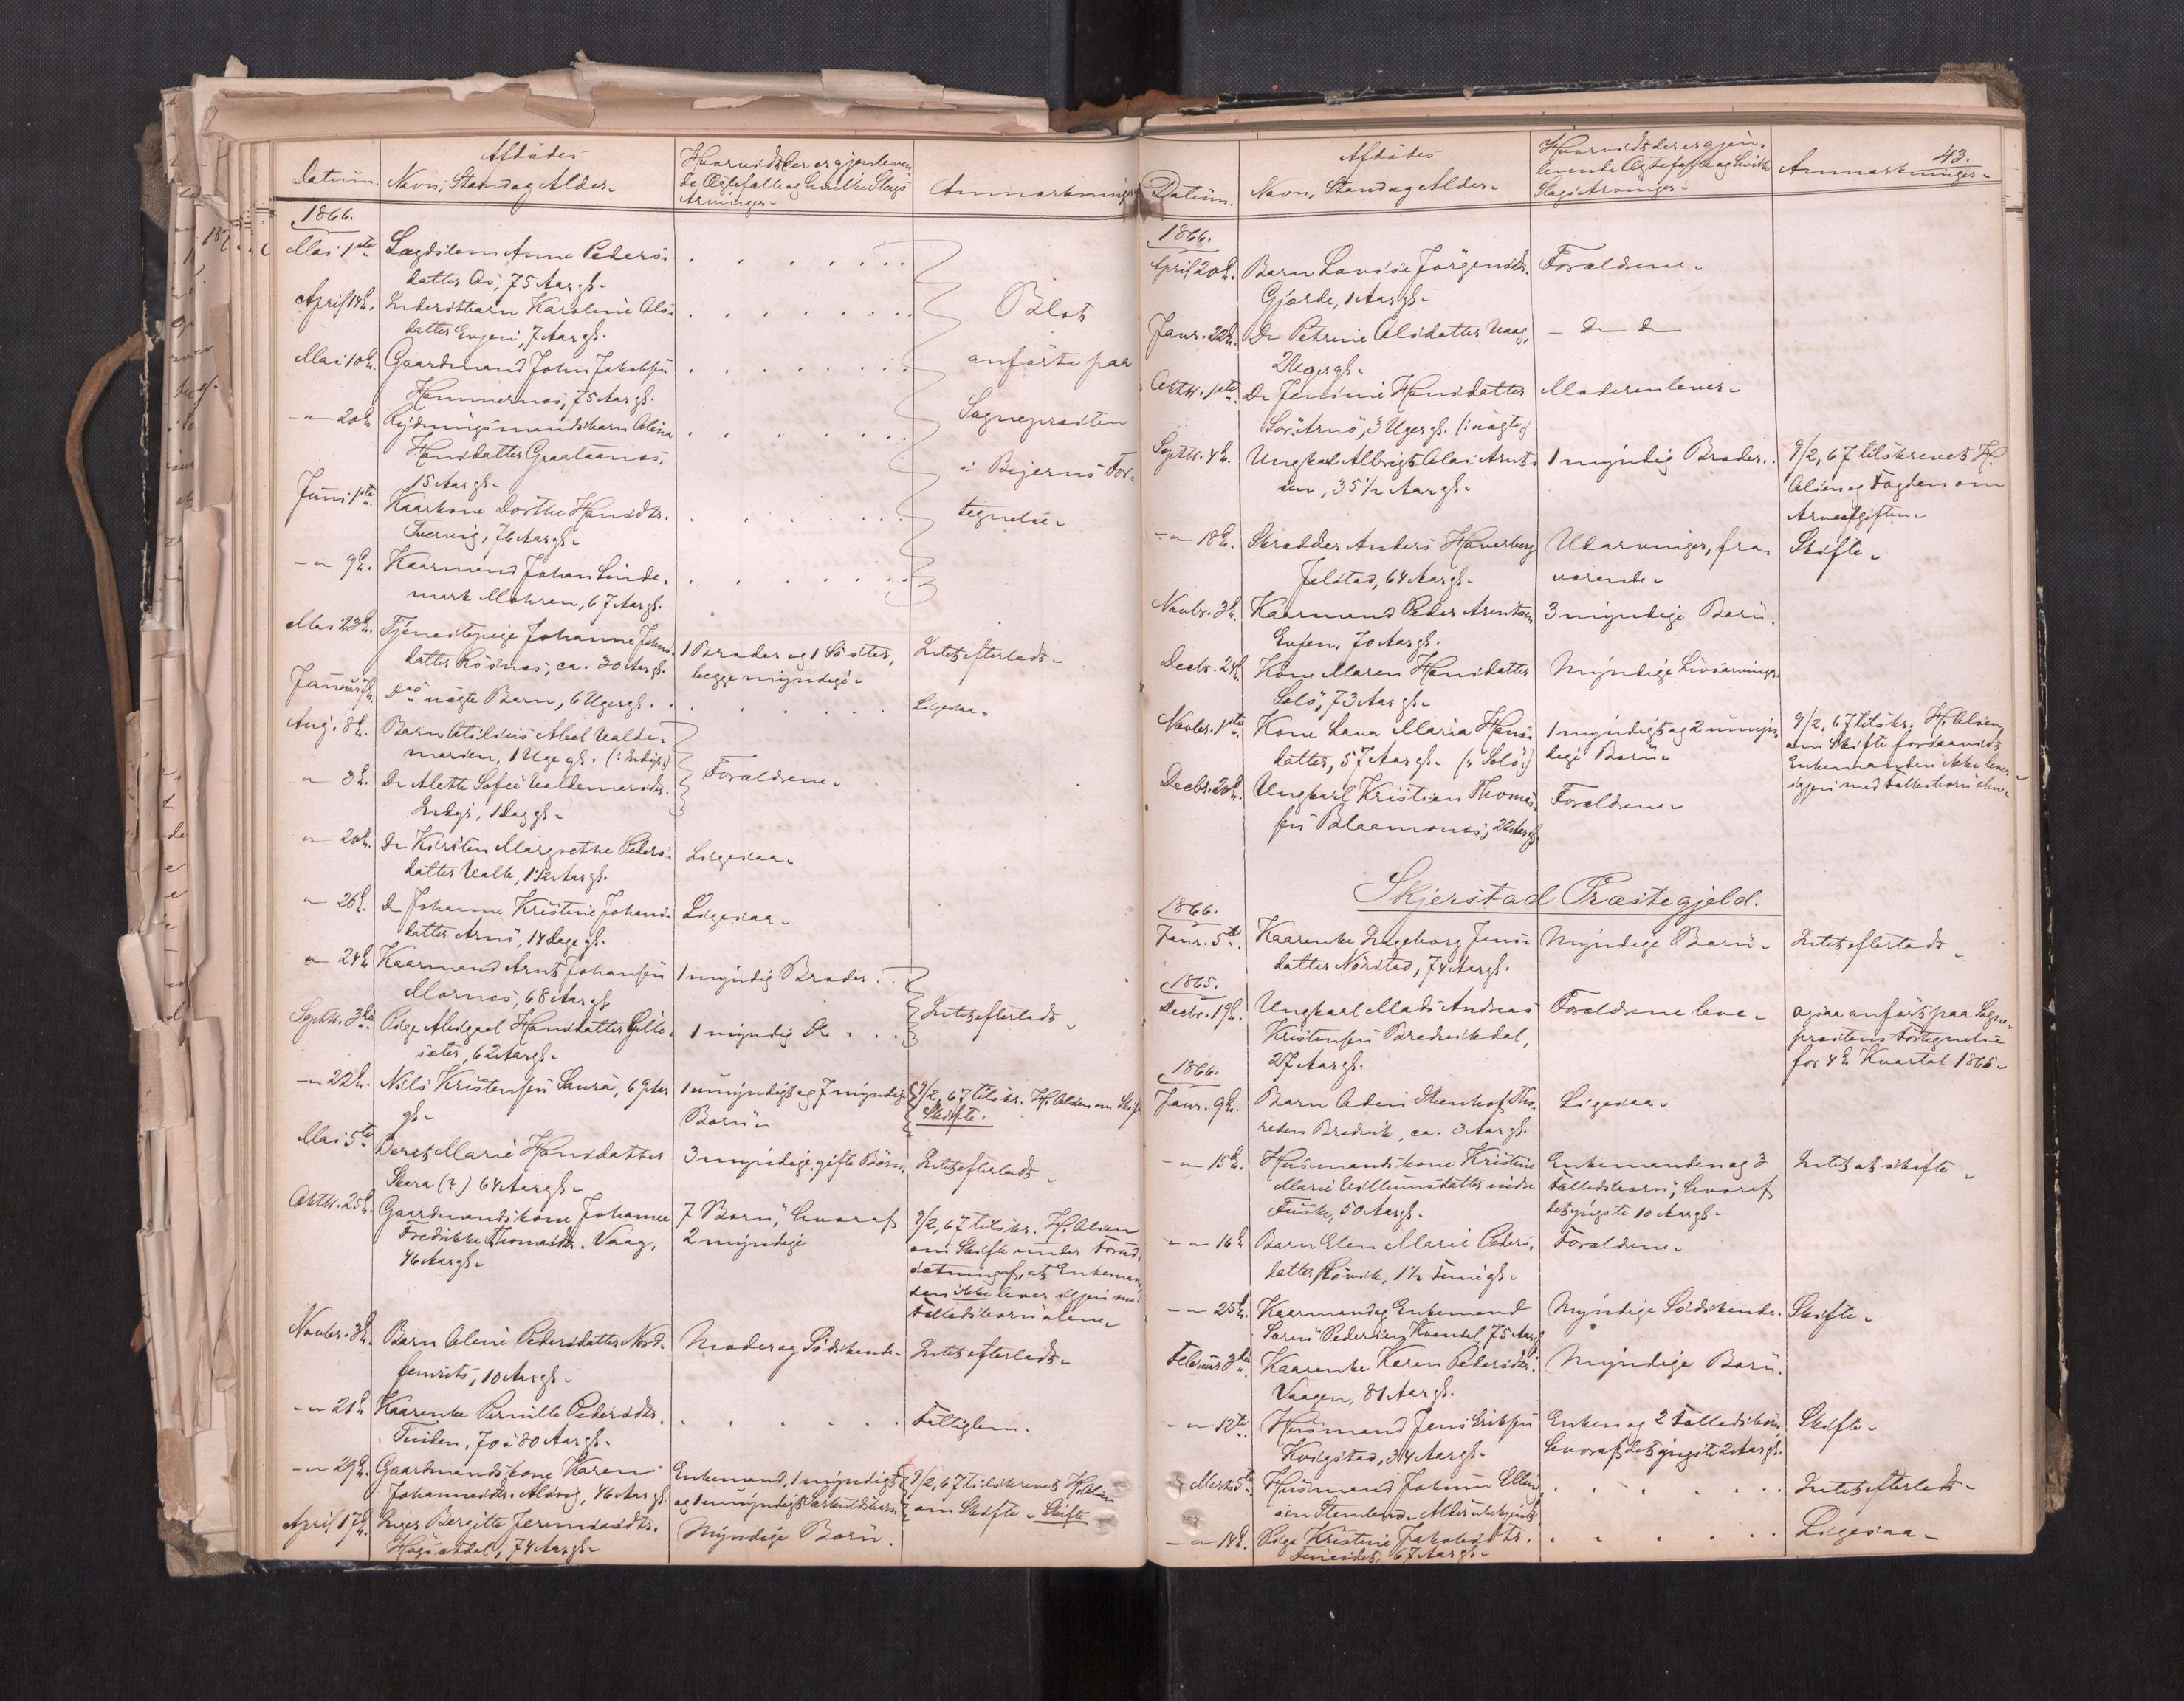 Afdødes
Hvorvidt der er gjenleven-
de Ægtefælle og hvilke Slags
Arvinger.
Datum.
Navn, Stand og Alder.
Anmærkninger
1866.
Mai 1ste
Lægdslem Anne Peders-
datter Os, 75 Aar gl.
April 14de.
Inderstbarn Karoline Ols-
datter Evjen, 7 Aar gl.
Mai 10de.
Gaardmand John Jakobsen
Hammernæs, 75 Aar gl.
- " 20de
Rydningsmandsbarn Olina
Hansdatter Graataanæs,
15 Aar gl.
Juni 1ste
Kaarkone Dorthe Hansdtr.
Tvervig, 76 Aar gl.
- " 9de.
Kaarmand Johan Linde-
mark Mohren, 67 Aar gl.
Blot
anførte paa
Sognepræsten
i Bejerns For-
tegnelse.
Mai 23de.
Tjenestepige Johanne Johns-
datter Røsnæs, ca. 30 Aar gl.
1 Broder og 1 Søster,
begge myndige.
Intet efterladt.
Januar
Ds uægte Barn, 6 Uger gl.
Ligesaa.
Aug. 8de.
Barn Otilius Abel Valde-
marsen, 1 Uge gl. (: Indyr:)
" 3de.
Do Alette Sofie Valdemarsdtr.
Indyr, 1 Dag gl.
Forældrene.
" 20de.
Do Kirsten Margrethe Peders-
datter Valle, 1 1/2 Aar gl.
Ligesaa.
" 26de.
Do Johanne Kristine Johans-
datter Arnø, 14 Dage gl.
Ligesaa.
" 24de
Kaarmand Arnt Johansen
Mornæs, 68 Aar gl.
1 myndig Broder.
Septbr. 3die
Pige Abelgael Hansdatter Gille-
sæter, 62 Aar gl.
1 myndig Do
Intet efterladt.
- " 22de.
Nils Kristensen Saura, 69 Aar
gl.
1 umyndigt og 7 myndige
Børn.
9/2, 67 tilskr. H. Olsen om Skifte
Skifte.
Mai 5te
Beret Marie Hansdatter
Skara (?) 64 Aar gl.
3 myndige, gifte Børn.
Intet efterladt.
Oktbr. 25de.
Gaardmandskone Johanne
Fredrikke Thomasdtr. Vaag,
46 Aar gl.
7 Børn, hvoraf
2 myndige
9/2, 67 tilskr. H. Olsen
om Skifte under Forud-
sætning af, at Enkeman-
den ikke lever igjen med
Fællesbørn alene.
Novbr. 3de.
Barn Oline Pedersdatter Nord-
fjernets, 10 Aar gl.
Moder og Sødskende.
Intet efterladt.
- " 21de
Kaarenke Pernille Pedersdtr.
Tuiden, 70 à 80 Aar gl.
Fattiglem.
- " 29de.
Gaardmandskone Karen
Johannesdtr. Alsvig, 46 Aar gl.
Enkemand, 1 myndigt
og 1 umyndigt Særkuldsbarn
9/2, 67 tilskrevet H. Olsen
om Skifte. Skifte
April 17de.
Inger Bergitte Jeremiasdtr.
Høgsætdal, 74 Aar gl.
Myndige Børn.
43.
Afdødes
Hvorvidt der er gjen-
levende Ægtefælle og hvilke
Slags Arvinger.
Datum.
Navn, Stand og Alder.
Anmærkninger.
1866.
April 20de.
Barn Lovise Jørgensdtr.
Gjærde, 1 Aar gl.
Forældrene.
Janr. 22de.
Do Petrine Olsdatter Vaag,
2 Uger gl.
- do do
Oktbr. 1ste
Do Jensine Hansdatter
Sør-Arnø, 3 Uger gl. (: uægte:)
Moderen lever.
Septbr. 4de.
Ungkarl Albrigt Olai Arnt-
sen, 35 1/2 Aar gl.
1 myndig Broder.
9/2, 67 tilskrevet H.
Olsen og Fogden om
Arveafgiften.
- " 18de.
Skrædder Anders Haverberg
Jelstad, 64 Aar gl.
Udarvinger, fra-
værende.
Skifte.
Novbr. 3de.
Kaarmand Peder Arentsen
Evjen, 70 Aar gl.
3 myndige Børn.
Decbr. 24de.
Kone Maren Hansdatter
Solø, 73 Aar gl.
Myndige Livsarvinger.
Novbr. 1ste
Kone Lava Maria Hans-
datter, 57 Aar gl. (: Solø:)
1 myndigt og 2 umyn-
dige Børn.
9/2, 67 tilskr. H. Olsen
om Skifte forsaavidt
Enkemanden ikke lever
igjen med Fællesbørn alene.
Decbr. 20de.
Ungkarl Kristian Thomas-
sen Blaamones, 22 Aar gl.
Forældrene.
Skjerstad Præstegjeld.
1866.
Janr. 5te.
Kaarenke Ingeborg Jens-
datter Nørstad, 74 Aar gl.
Myndige Børn.
Intet efterladt.
1865.
Decbr. 19de.
Ungkarl Mads Andreas
Kristensen Bredvikdal,
27 Aar gl.
Forældrene leve.
ogsaa anført paa Sogne-
præstens Fortegnelse
for 4de Kvartal 1865.
1866.
Janr. 9de.
Barn Odin Stenhof Tho-
resen Bredvik, ca. 3 Aar gl.
Ligesaa.
- " 15de.
Husmandskone Kristine
Marie Villumsdatter nedre
Fuske, 50 Aar gl.
Enkemanden og 3
Fællesbørn, hvoraf
det yngste 10 Aar gl.
Intet at skifte.
- " 16de
Barn Elen Marie Peders-
datter Løvik, 1 1/2 Time gl.
Forældrene.
- " 25de.
Kaarmand og Enkemand
Søren Pedersen Kvændal, 75 Aar gl
Myndige Sødskende.
Skifte.
Februar 3die
Kaarenke Karen Pedersdtr.
Vaagen, 81 Aar gl.
Myndige Børn.
- " 12te
Husmand Jens Eriksen
Kvigstad, 34 Aar gl.
Enken og 2 Fællesbørn,
hvoraf det yngste 2 Aar gl.
Skifte.
Marts 5te
Husmand Johan Elling-
sen Stemland. Alder ubekjendt
Intet efterladt.
- " 14de.
Pige Kristine Jakobsdtr.
Fineidet, 67 Aar gl.
Ligesaa.